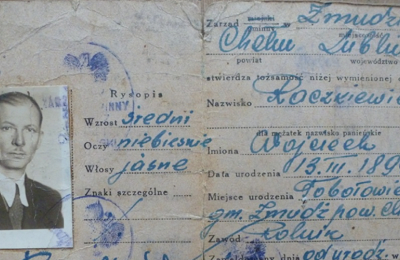 Rysopis
Wzrost średni
Oczy niebieskie
Włosy jasne
Znaki szczególne
Zarząd miejski w Żmudzi
gminny
Chełm Lubl
powiat województwo
stwierdza tożsamość niżej wymienionej
Nazwisko Kaczkiewic
dla mężatek nazwisko panieńskie
Imiona Wojciech
Data urodzenia 13. III. 189
Miejsce urodzenia Pobołowic
gm. Żmudź pow. Ch
Zawód rolnik
od urodz.